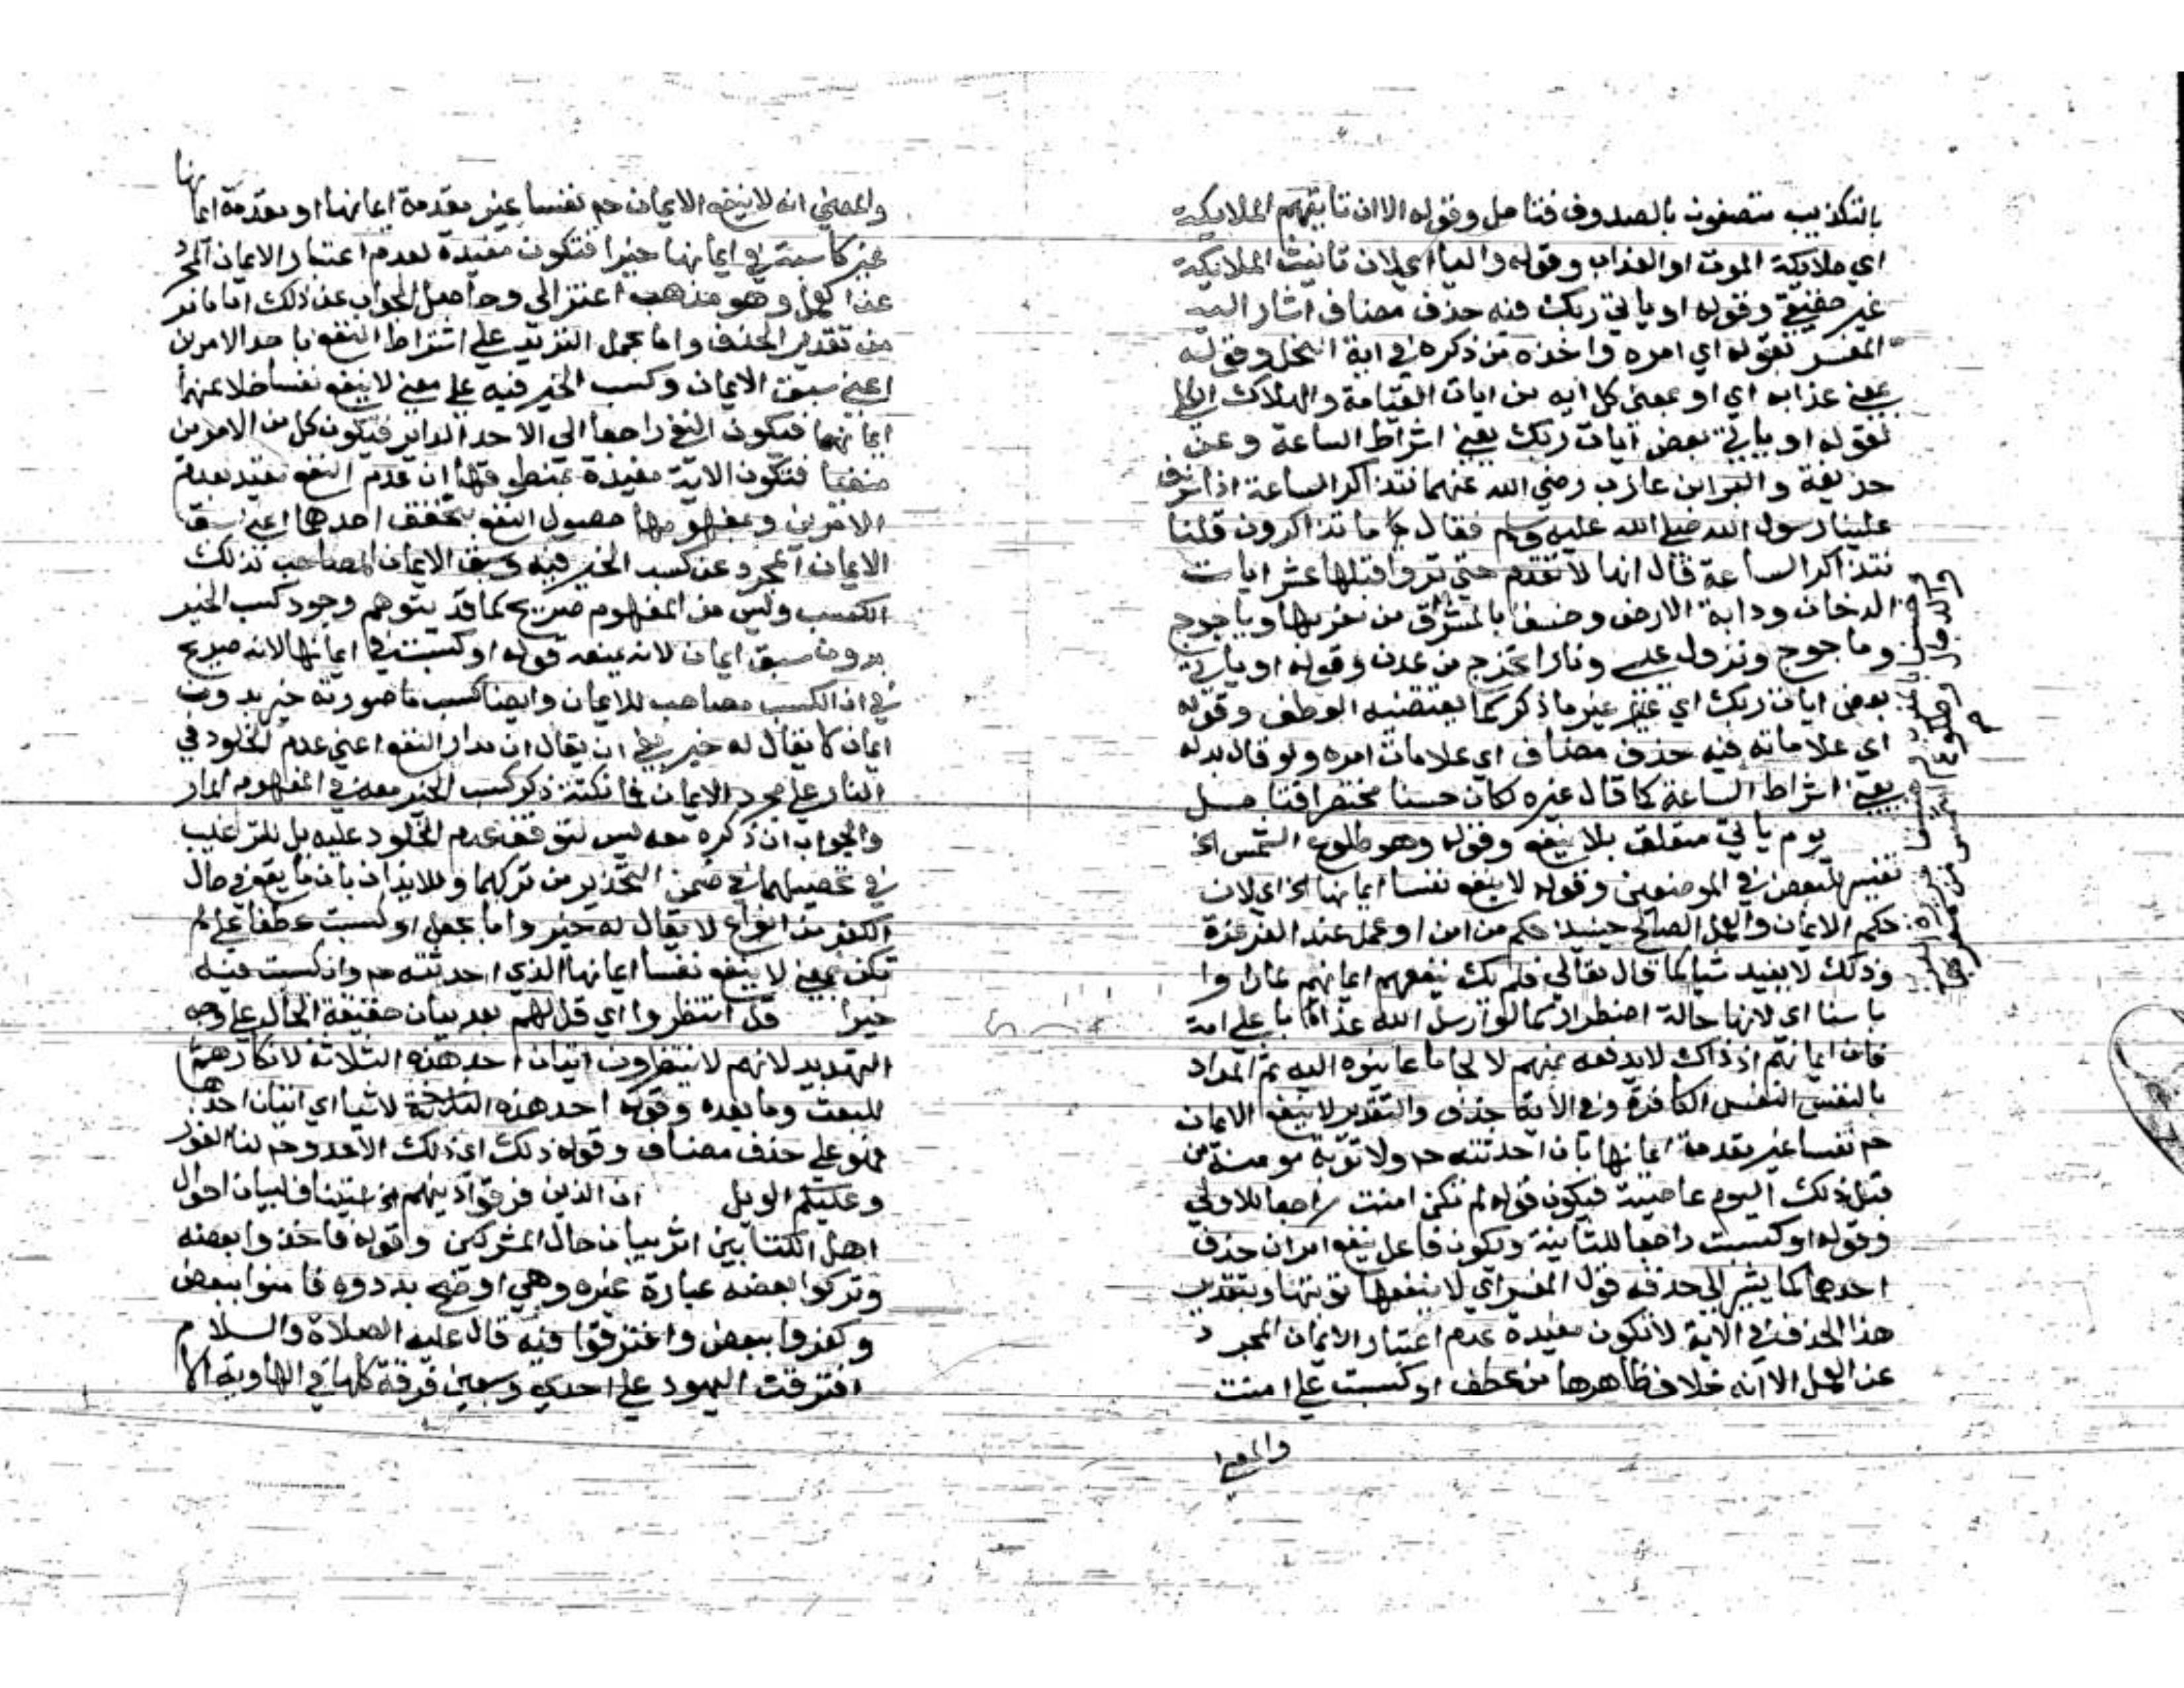 بالتكذيب متصفون بالصدوف فتامل وقوله الا ان تاتيهم الملايكة
اي ملايكة الموت او العذاب وقوله والتا اي لان تانيث الملايكة
غير حقيقي وقوله او ياتي ربك فيه حذف مضاف اشار اليه
المفسر بقوله اي امره واخذه من ذكره في اية النحل وقوله
بمعني عذابه اي او بمعني كل ايه من ايات القيامة والهلاك الكلي
لقوله او ياتي بعض ايات ربك يعني اشراط الساعة وعن
حذيفة والبرا بن عازب رضي الله عنهما نتذاكر الساعة اذا شرف
علينا رسول الله صلي الله عليه وسلم فقال ما تذاكرون قلنا
نتذاكر الساعة قال انها لا تقوم حتي تروا قبلها عشر ايات
الدخان ودابة الارض وخسفا بالمشرق من مغربها وياجوج
وماجوج ونزول عيسي ونارا تخرج من عدن وقوله او ياتي
بعض ايات ربك اي غير ما ذكر كما يقتضيه العطف وقوله
اي علاماته فيه حذف مضاف اي علامات امره ولو قال بدله
يعني اشراط الساعة كما قال غيره لكان حسنا مختصرا فتامل
يوم ياتي متعلق بلا ينفع وقوله وهو طلوع الشمس الخ
تفسير للبعض في الموضعين وقوله لا ينفع نفسا ايمانها الخ اي لان
حكم الايمان والعمل الصالح حينيذ حكم من امن او عمل عند الغرغرة
وذلك لا يفيد شيا كما قال تعالي فلم يك ينفعهم ايمانهم لما راوا
باسنا اي لانها حالة اضطرار كما لو ارسل الله عذابا علي امة
فان ايمانهم اذ ذاك لا يدفعه عنهم لالجا ما عاينوه اليه ثم المراد
بالنفس النفس الكافرة وفي الاية حذف والتقدير لا ينفع الايمان
ح نفسا غير مقدمة ايمانها بان احدثته ح ولا توبة مومنة من
قبل ذلك اليوم عاصية فيكون قوله لم تكن امنت راجعا للاولي
وقوله او كسبت راجعا للثانية ويكون فاعل ينفع امران حذف
احدهما كما يشير الي حذفه قول المفسر اي لا ينفعها توبتها وبتقدير
هذا الحذف في الاية لا تكون مفيدة عدم اعتبار الايمان المجرد
عن العمل الا انه خلاف ظاهرها من عطف او كسبت علي امنت
والمعني
والدجال وطلوع الشمس من مغربها
والمعني انه لا ينفع الايمان ح نفسا غير مقدمة ايمانها او مقدمة ايمانها
غير كاسبة في ايمانها خيرا فتكون مفيدة لعدم اعتبار الايمان المجرد
عن العمل وهو مذهب اعتزالي وحاصل الجواب عن ذلك اما ما مر
من تقدير الحذف واما بحمل الترديد علي اشتراط النفع باحد الامرين
اعني سبق الايمان وكسب الخير فيه علي معني لا ينفع نفسا خلا عنهما
ايمانهما فيكون النفع راجعا الي الاحد الداير فيكون كل من الامرين
منفيا فتكون الاية مفيدة بمنطوقها ان عدم النفع مقيد بعدم
الامرين وبمفهومها حصول النفع بتحقق احدهما اعني سبق
الايمان المجرد عن كسب الخير فيه وسبق الايمان المصاحب لذلك
الكسب وليس من المفهوم صريح كما قد يتوهم وجود كسب الخير
بدون سبق ايمان لانه يمنعه قوله او كسبت في ايمانها لانه صريح
في ان الكسب مصاحب للايمان وايضا كسب ما صورته خير بدون
ايمان لا يقال له خير ان يقال ان مدار النفع اعني عدم الخلود في
النار علي مجرد الايمان فما نكتة ذكر كسب الخير معه في المفهوم المار
والجواب ان ذكره معه ليس لتوقف عدم الخلود عليه بل للترغيب
في تحصيلهما في ضمن التحذير من تركهما وللايذان بان ما يقع في حال
الكفر من انواع لا يقال له خير واما بجعل او كسبت عطفا علي لم
تكن بمعني لا ينفع نفسا ايمانها الذي احدثته ح وان كسبت فيه
خيرا قل انتظروا اي قل لهم بعد بيان حقيقة الحال علي وجه
التهديد لانهم لا ينتظرون اتيان احد هذه الثلاثة لانكارهم
للبعث وما بعده وقوله احد هذه الثلاثة لاشيا اي اتيان احدها
فهو علي حذف مضاف وقوله ذلك اي ذلك الاحد وح لنا الفوز
وعليكم الويل ان الذين فرقوا دينهم الخ استيناف لبيان احوال
اهل الكتابين اثر بيان حال المشركين وقوله فاخذوا بعضه
وتركوا بعضه عبارة غيره وهي اوضح بددوه فامنوا ببعض
وكفروا ببعض وافترقوا فيه قال عليه الصلاة والسلام
افترقت اليهود علي احدي وسبعين فرقة كلها في الهاوية الا